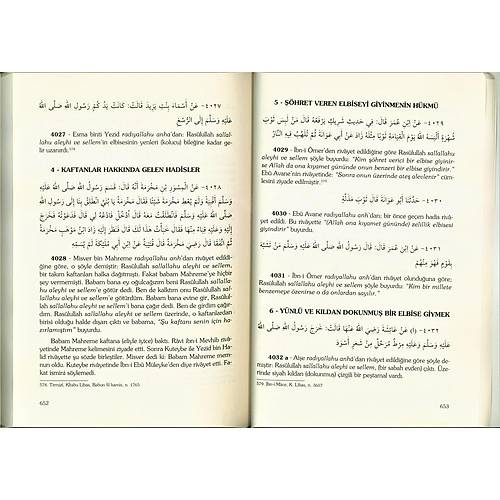 ٤٠٢٧- عَنْ أَسْمَاءَ بِنْتِ يَزِيدَ قَالَتْ: كَانَتْ يَدُ كُمِّ رَسُولِ اللهِ صَلَّى اللهُ
عَلَيْهِ وَسَلَّمَ إِلَى الرُّسْغِ
4027 - Esma binti Yezid radıyallahu anha'dan: Rasûlullah sallal-
lahu aleyhi ve sellem'in elbisesinin yenleri (kolucu) bileğine kadar ge-
lir uzanırdı.
4 - KAFTANLAR HAKKINDA GELEN HADİSLER
٤٠٢٨- عَنْ الْمِسْوَرِ بْنِ مَخْرَمَةَ أَنَّهُ قَالَ: قَسَمَ رَسُولُ اللهِ صَلَّى اللهُ عَلَيْهِ
وَسَلَّمَ أَقْبِيَةً وَلَمْ يُعْطِ مَخْرَمَةَ شَيْئًا فَقَالَ مَخْرَمَةُ يَا بُنَيَّ انْطَلِقْ بِنَا إِلَى رَسُولِ
اللهِ صَلَّى اللهُ عَلَيْهِ وَسَلَّمَ فَانْطَلَقْتُ مَعَهُ قَالَ ادْخُلْ فَادْعُهُ لِي قَالَ فَدَعَوْتُهُ فَخَرَجَ
4028 - Misver bin Mahreme radıyallahu anh'dan rivâyet edildi-
ğine göre, o şöyle demiştir: Rasûlullah sallallahu aleyhi ve sellem,
bir takım kaftanlar dağıtmıştı. Fakat babam Mahreme'ye hiçbir
şey vermemişti. Babam bana ey oğulcağızım beni Rasûlullah sallal-
lahu aleyhi ve sellem'e götür dedi. Ben de kalktım onu Rasûlullah
sallallahu aleyhi ve sellem'e götürdüm. Babam bana evine gir, Rasûlul-
lah sallallahu aleyhi ve sellem'i bana çağır dedi. Ben de girdim çağır-
dım. Rasûlullah sallallahu aleyhi ve sellem üzerinde, o kaftanlardan
birisi olduğu halde dışarı çıktı ve babama, "Şu kaftanı senin için ha-
zırlamıştım" buyurdu.
Babam Mahreme kaftana (elsyle) baktı. Râvi ibn-i Mevhib rivâye-
tinde Mahreme kelimesini ziyade etti. Sonra Kuteybe ile Yezid bin Ha-
lid rivâyette şu sözde birleştiler. Misver dedi ki: Babam Mahreme mem-
nun oldu. Kuteybe rivâyetinde İbn-i Ebû Müleyke'den diye rivâyet etti. Fa-
kat ismini söylemedi.
578. Tirmizi, Kitabu Libas, n. 1765.
652
5 - ŞÖHRET VEREN ELBİSEYİ GİYİNMENİN HÜKMÜ
٤٠٢٩- عَنْ ابْنِ عُمَرَ قَالَ: فِي حَدِيثِ شَرِيكٍ يَرْفَعُهُ قَالَ مَنْ لَبِسَ ثَوْبَ
شُهْرَةٍ أَلْبَسَهُ اللهُ يَوْمَ الْقِيَامَةِ ثَوْبًا مِثْلَهُ زَادَ عَنْ أَبِي عَوَانَةَ ثُمَّ تُلَهَّبُ فِيهِ النَّارُ
4029 - İbn-i Ömer'den rivâyet edildiğine göre Rasûlullah sallallahu
aleyhi ve sellem şöyle buyurdu: "Kim şöhret verici bir elbise giyinir-
se Allah da ona kıyamet gününde onun benzeri bir elbise giydirir."
Ebû Avane'nin rivâyetinde: "Sonra onun üzerinde ateş alevlenir" cüm-
lesini ziyade edilmiştir.
٤٠٣٠- حَدَّثَنَا أَبُو عَوَانَةَ قَالَ ثَوْبَ مَذَلَّةٍ
4030 - Ebû Avane radıyallahu anh'dan; bir önce geçen hadis rivâ-
yet edildi. Bu rivâyette "(Allah ona kıyamet gününde) zelillik elbisesi
giydirir" buyurdu.
٤٠٣١- عَنْ ابْنِ عُمَرَ قَالَ: قَالَ رَسُولُ اللهِ صَلَّى اللهُ عَلَيْهِ وَسَلَّمَ مَنْ تَشَبَّهَ
بِقَوْمٍ فَهُوَ مِنْهُمْ
4031 - İbn-i Ömer radıyallahu anh'dan rivâyet olunduğuna göre;
Rasûlullah sallallahu aleyhi ve sellem şöyle buyurdu: "Kim bir millete
benzemeye özenirse o da onlardan sayılır."
6 - YÜNLÜ VE KILDAN DOKUNMUŞ BİR ELBİSE GİYMEK
٤٠٣٢- (١) عَنْ عَائِشَةَ رَضِيَ اللهُ عَنْهَا قَالَتْ: خَرَجَ رَسُولُ اللهِ صَلَّى اللهُ
عَلَيْهِ وَسَلَّمَ وَعَلَيْهِ مِرْطٌ مُرَحَّلٌ مِنْ شَعَرٍ أَسْوَدَ
4032 a - Aişe radıyallahu anha'dan rivâyet edildiğine göre şöyle de-
miştir: Rasûlullah sallallahu aleyhi ve sellem, (bir sabah evden) çıktı. Üze-
rinde siyah kıldan (dokunmuş) çizgili bir peştamal vardı.
579. İbn-i Mâce, K. Libas, n. 3607
653